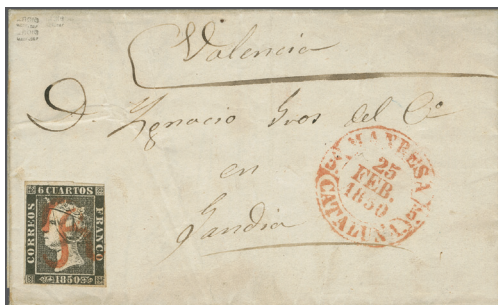 Valencia
D. Ignacio
del
en
Gandia
MANRESA
25
FEB.
1850
CATALUÑA
6 CUARTOS
CORREOS
FRANCO
1850